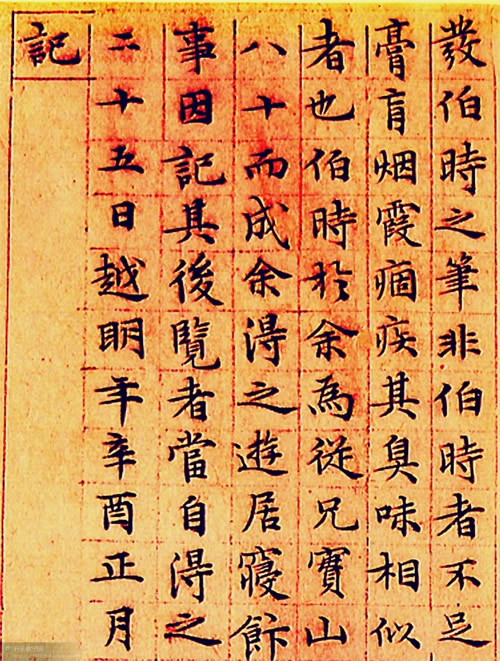 發伯時之筆非伯時者不足
膏肓烟霞痼疾其臭味相似
者也伯時於余為從兄寶山
八十而成余得之遊居寢飰
事因記其後覽者當自得之
二十五日越明年辛酉正月
記